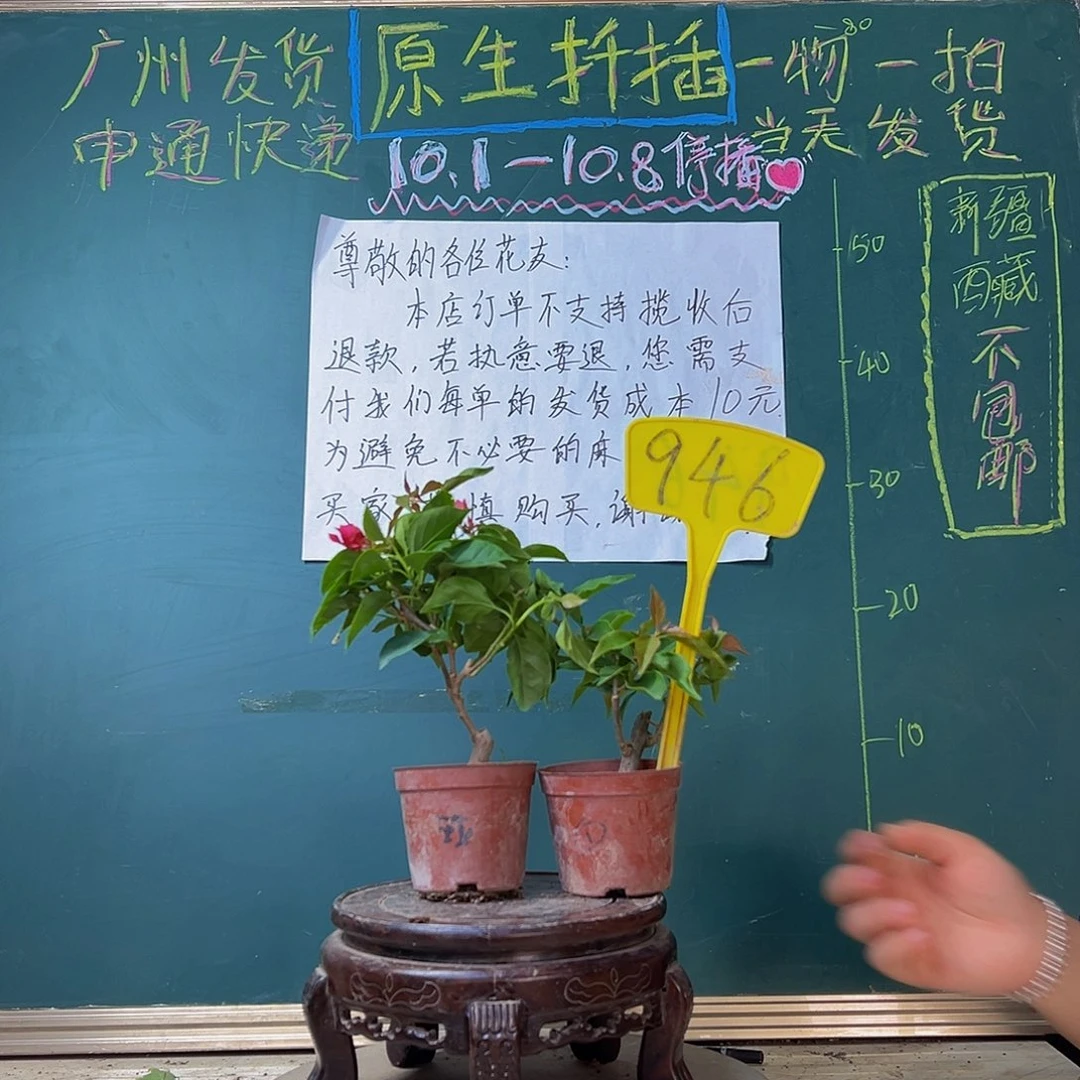 广州发货
原生扦插
一物一拍
80
申通快递
当天发货
10.1—10.8停播
尊敬的各位花友：
本店订单不支持揽收后
退款，若执意要退，您需支
付我们每单的发货成本10元
为避免不必要的麻
买家 慎购买，谢
946
50
40
30
20
10
新疆
西藏
不
包
邮